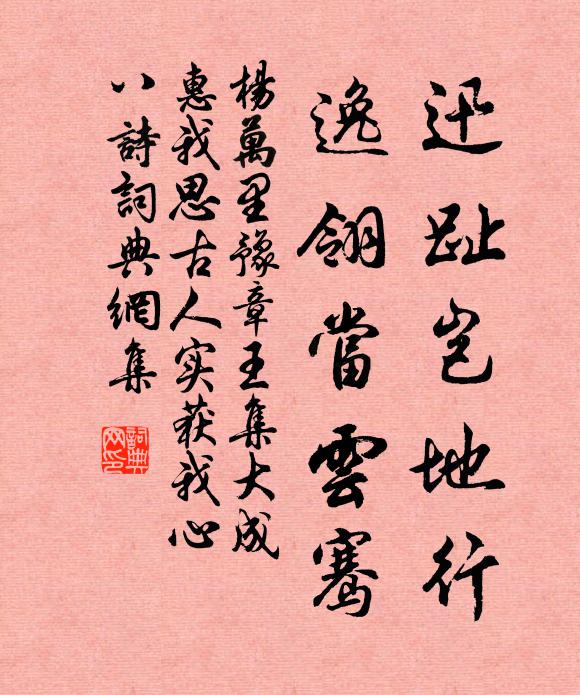 迅趾岂地行
逸翎當雲騫
楊萬里豫章王集大成
惠我思古人实获我心
八詩詞典網集
詞典网印